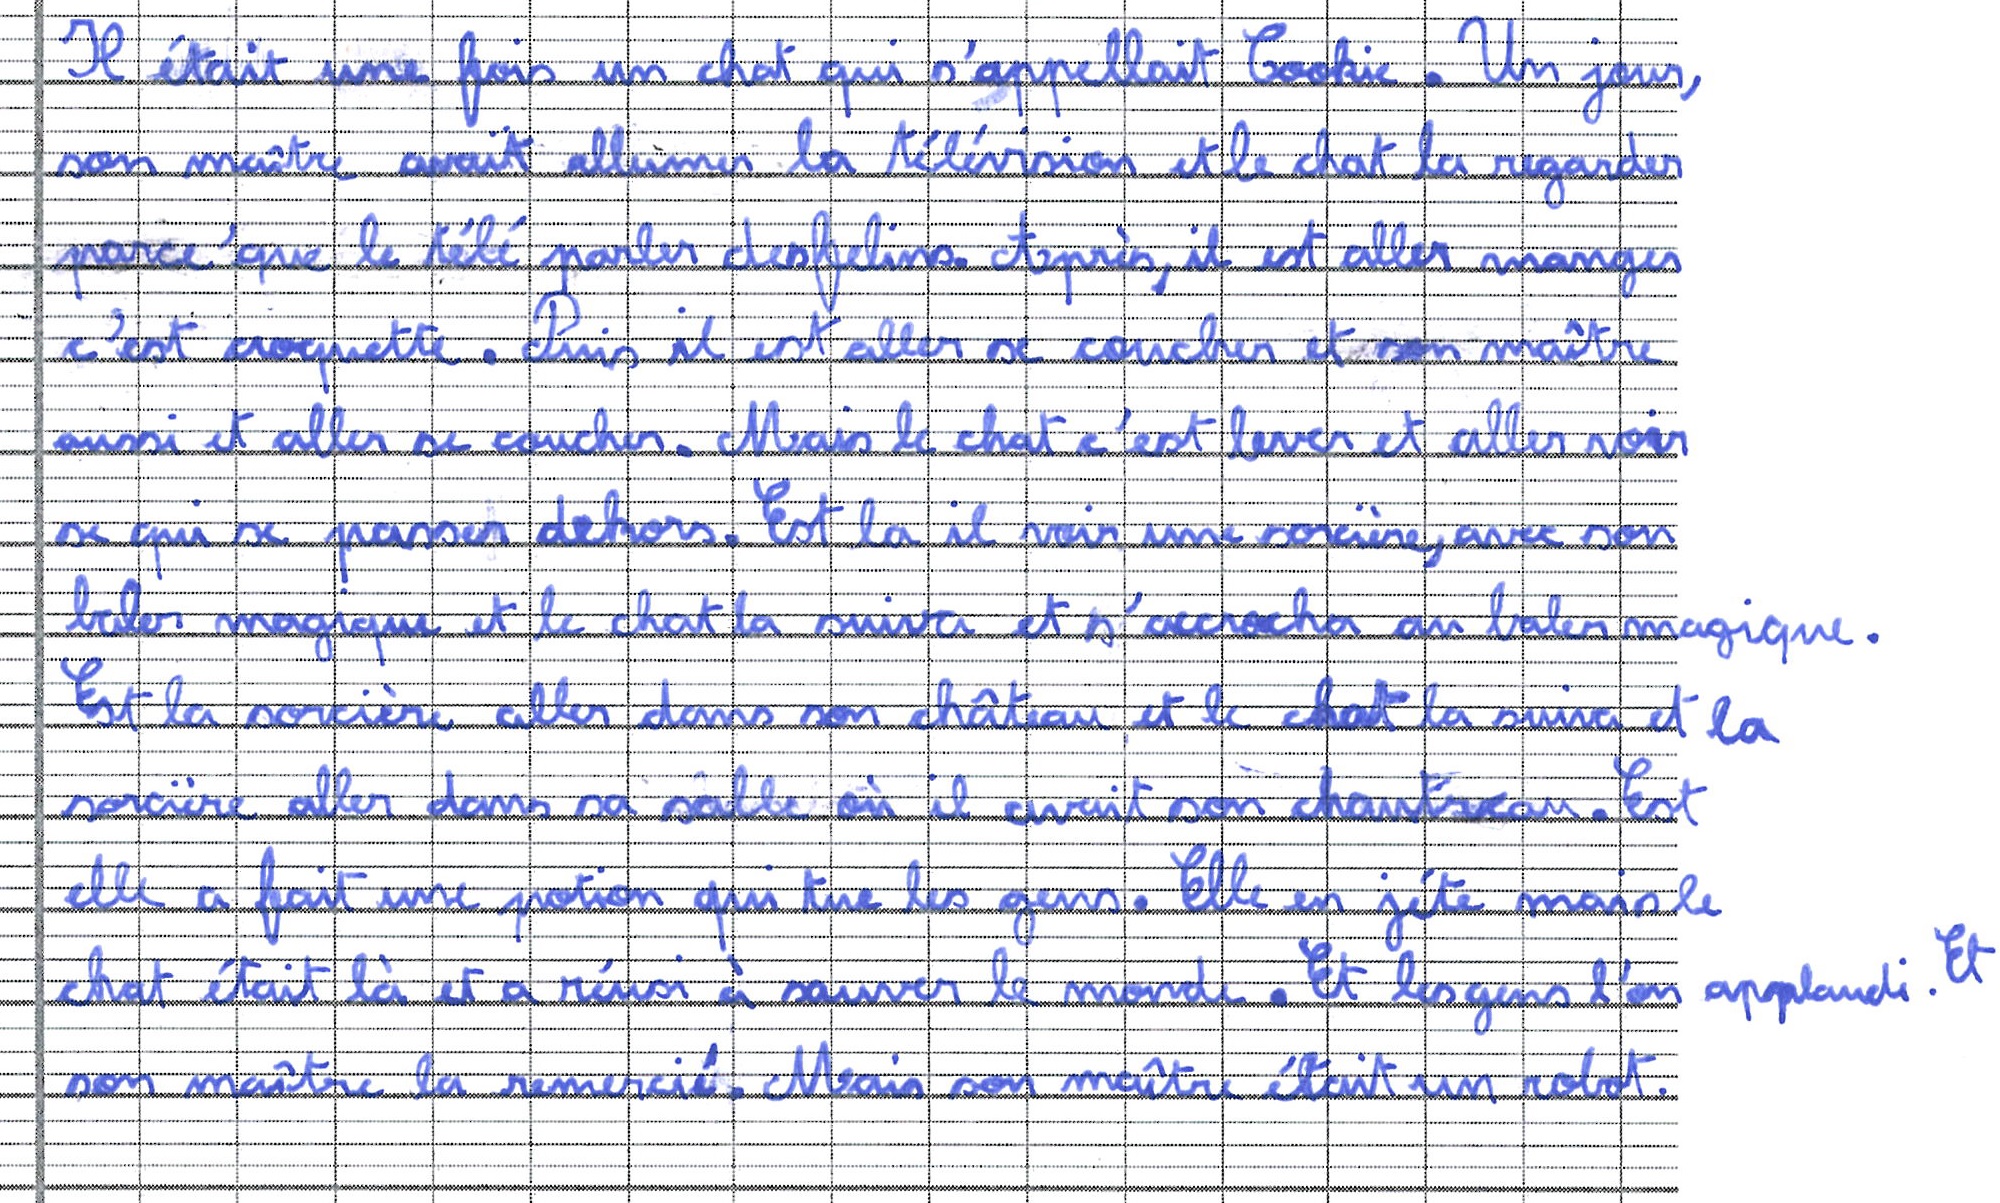 Il était une fois un chat qui s'appellait Cookie. Un jour,
son maître avait allumer la télévision et le chat la regarder
parce que le télé parler desfelins. Après, il est aller manger
c'est croquette. Puis il est aller se coucher et son maître
aussi et aller se coucher. Mais le chat c'est lever et aller voir
se qui se passer dehors. Est la il voir une sorcière, avec son
baler magique et le chat la suiva et s'accrocha au baler magique.
Est la sorcière aller dans son château et le chat la suiva et la
sorcière aller dans sa salle où il avait son Est
elle a fait une potion qui tue les gens. Elle en jéte mais le
chat était là et a réusi à sauver le monde. Et les gens l'on applaudi. Et
son maître la remercié. Mais son maître était un robot.